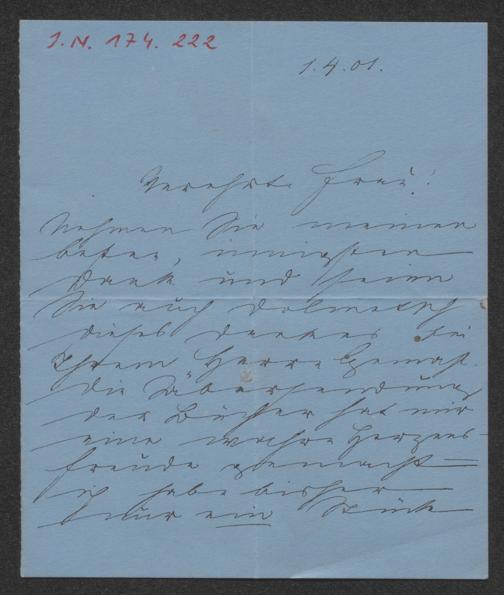 I.N. 174.222
1.4.01.
Verehrte Frau!
Nehmen Sie meinen
besten, innigsten
Dank und seien
Sie auch Dolmetsch
dieses Dankes bei
Ihrem Herrn Gemahl.
Die Übersendung
der Bücher hat mir
eine wahre Herzens-
freude gemacht –
ich habe bisher
nur ein Stück